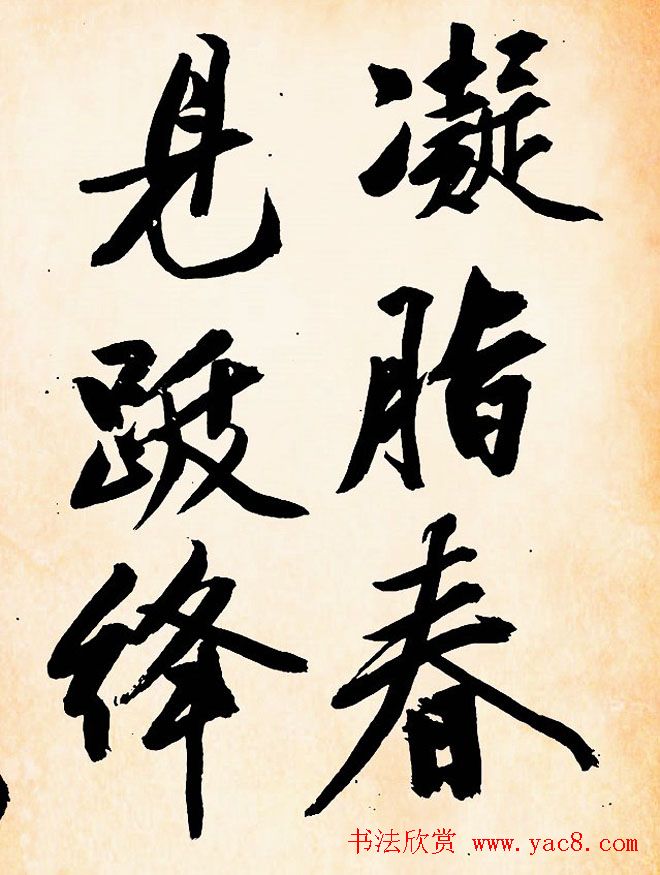 凝脂春
見跋絳
书法欣赏 www.yac8.com